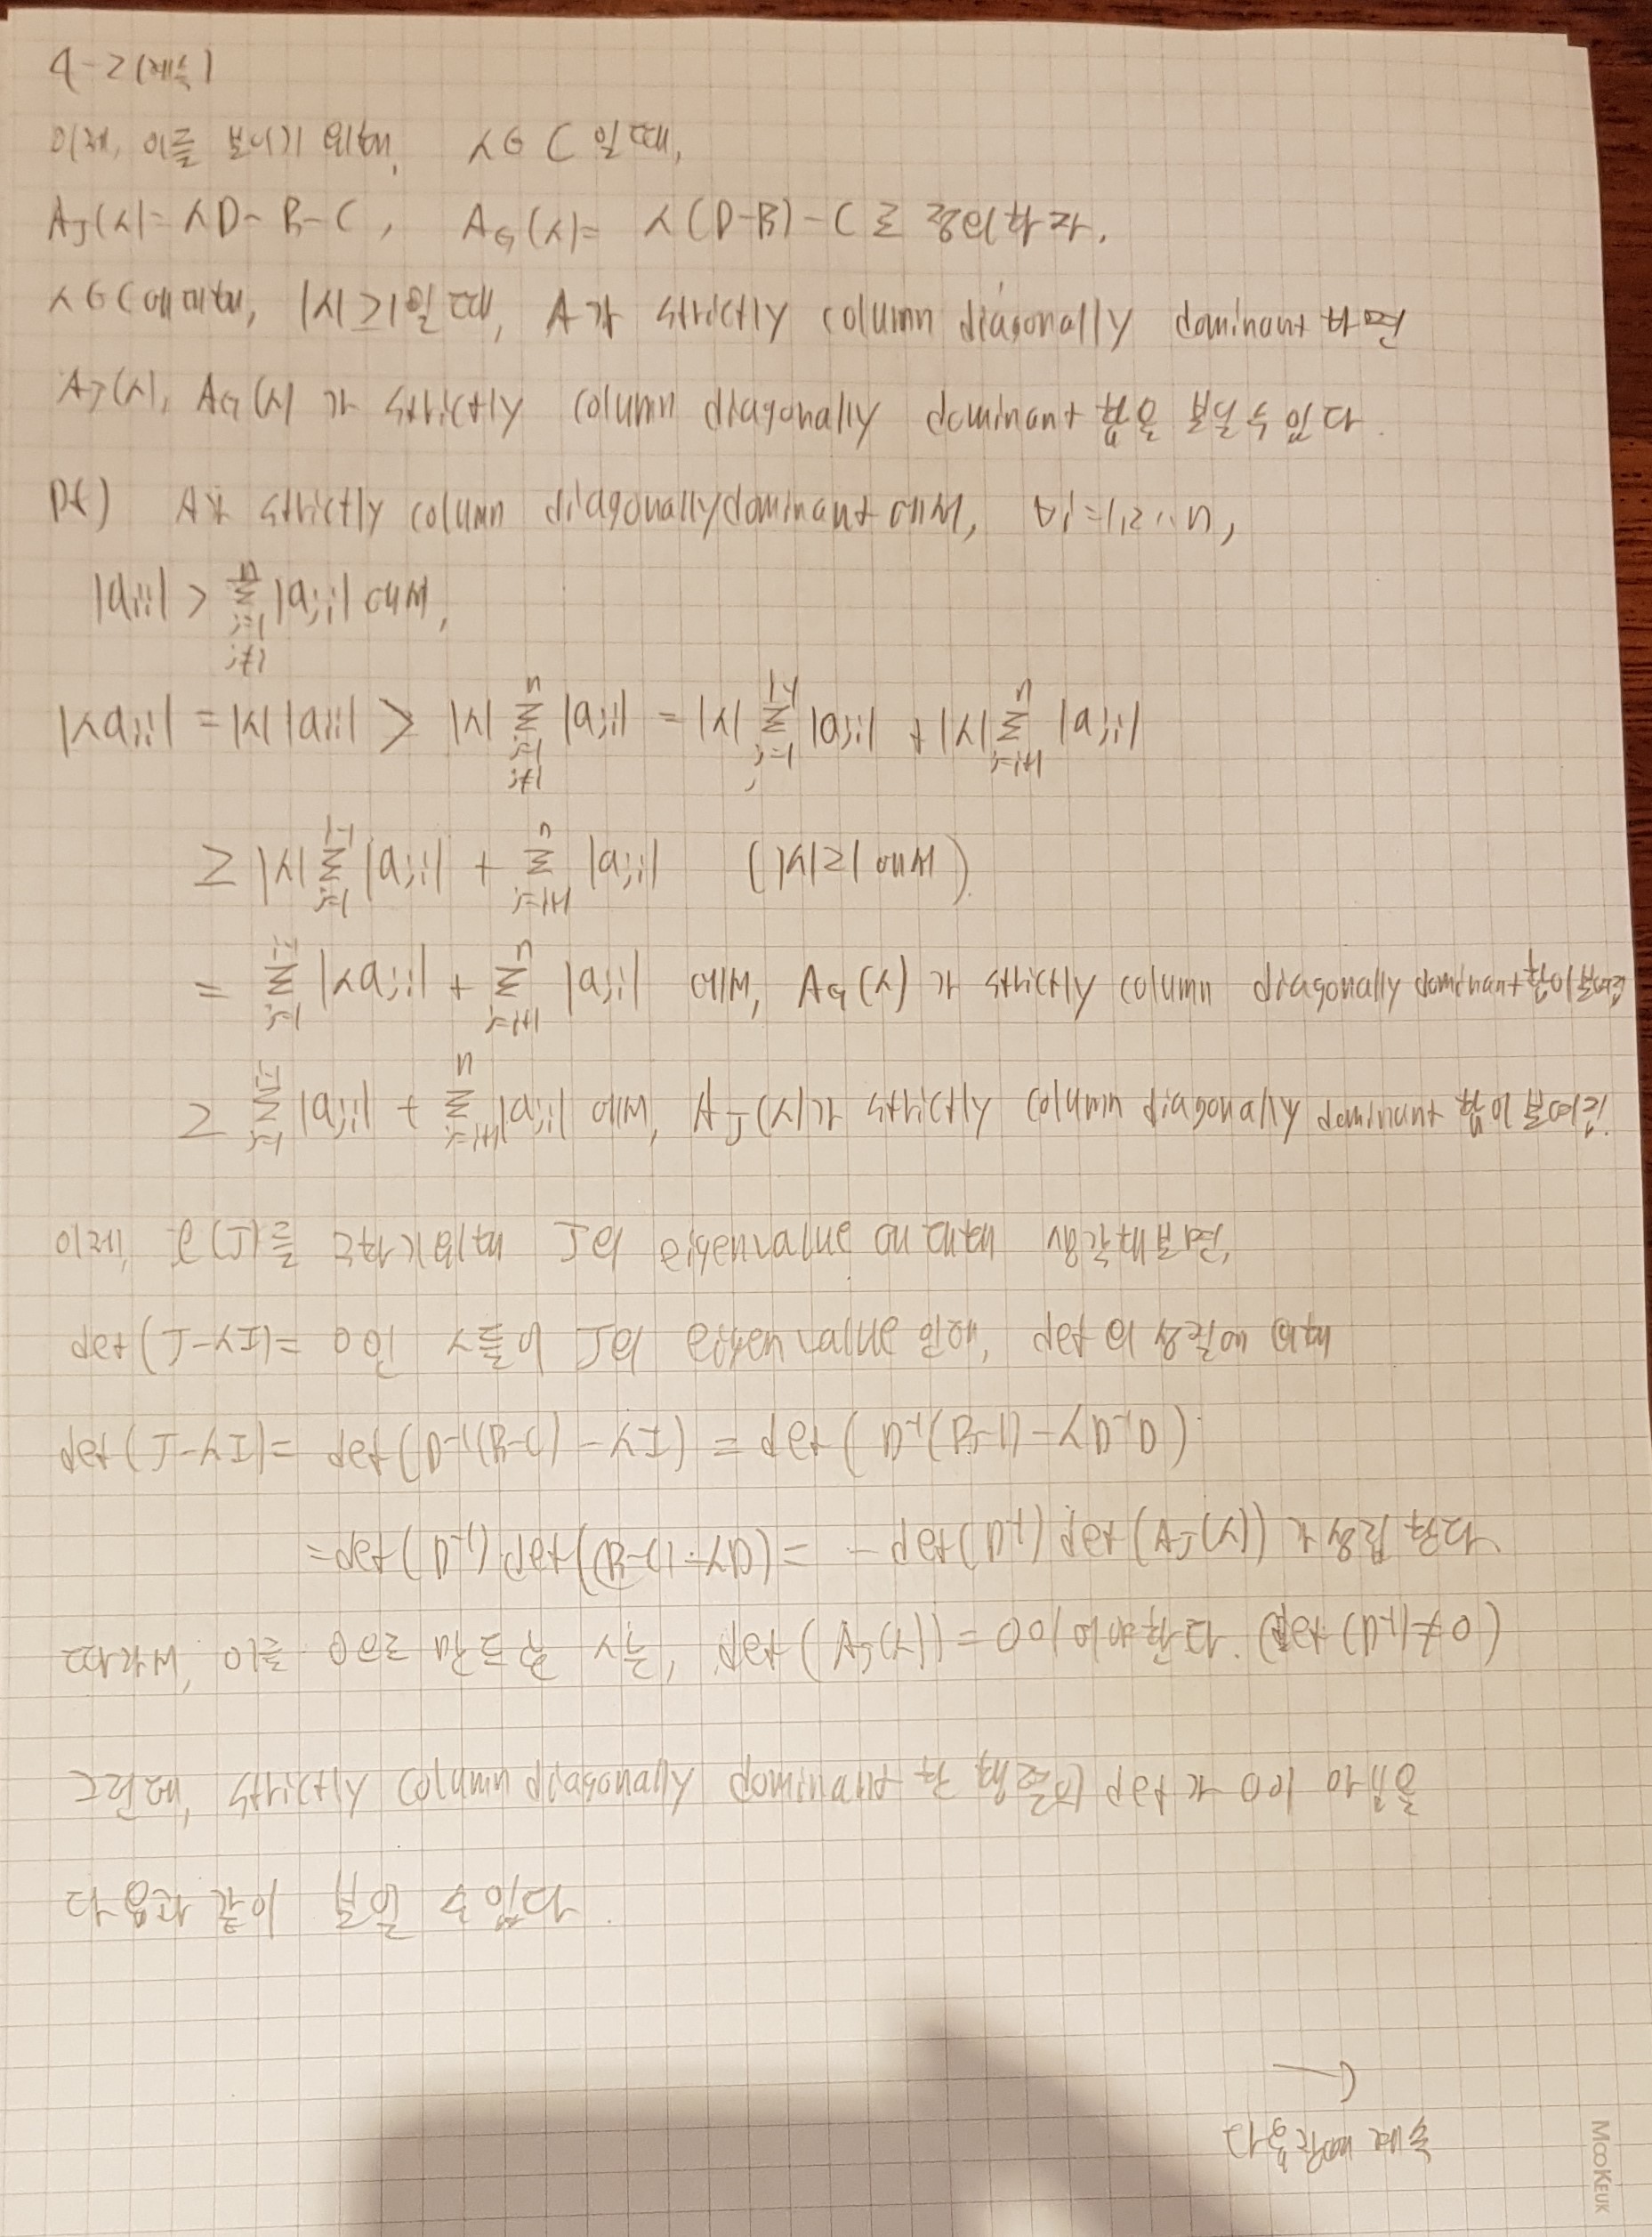 4-2(계속)
이제, 이를 보이기 위해, λ∈C 일때,
A_J(λ)= λD-B-C, A_G(λ)= λ(D-B)-C로 정의하자.
λ∈C에 대해, |λ|≥1일 때, A가 strictly column diagonally dominant 하면
A_J(λ), A_G(λ)가 strictly column diagonally dominant 함을 보일 수 있다.
pf) A가 strictly column diagonally dominant 에서, ∀i=1,2,...,n,
|a_{ii}| > \sum_{j=1, j≠i}^{n} |a_{ji}| 에서,
|λa_{ii}| = |λ||a_{ii}| > |λ| \sum_{j=1, j≠i}^{n} |a_{ji}| = |λ| \sum_{j=1}^{i-1} |a_{ji}| + |λ| \sum_{j=i+1}^{n} |a_{ji}|
≥ |λ| \sum_{j=1}^{i-1} |a_{ji}| + \sum_{j=i+1}^{n} |a_{ji}| (|λ|≥1 에서)
= \sum_{j=1}^{i-1} |λa_{ji}| + \sum_{j=i+1}^{n} |a_{ji}| 에서, A_G(λ)가 strictly column diagonally dominant 함이 보여짐
≥ \sum_{j=1}^{i-1} |a_{ji}| + \sum_{j=i+1}^{n} |a_{ji}| 에서, A_J(λ)가 strictly column diagonally dominant 함이 보여짐.
이제, ρ(J)를 구하기 위해 J의 eigenvalue에 대해 생각해보면,
det(J-λI)=0인 λ들이 J의 eigenvalue인데, det의 성질에 의해
det(J-λI)= det(D^{-1}(B+C)-λI) = det(D^{-1}(B+C)-λD^{-1}D)
=det(D^{-1})det((B+C)-λD)= -det(D^{-1})det(A_J(λ))가 성립한다.
따라서, 이를 0으로 만드는 λ는, det(A_J(λ))=0이어야한다. (det(D^{-1})≠0)
그런데, strictly column diagonally dominant한 행렬의 det가 0이 아님을
다음과 같이 보일 수 있다.
다음장에 계속
MOOKEUK